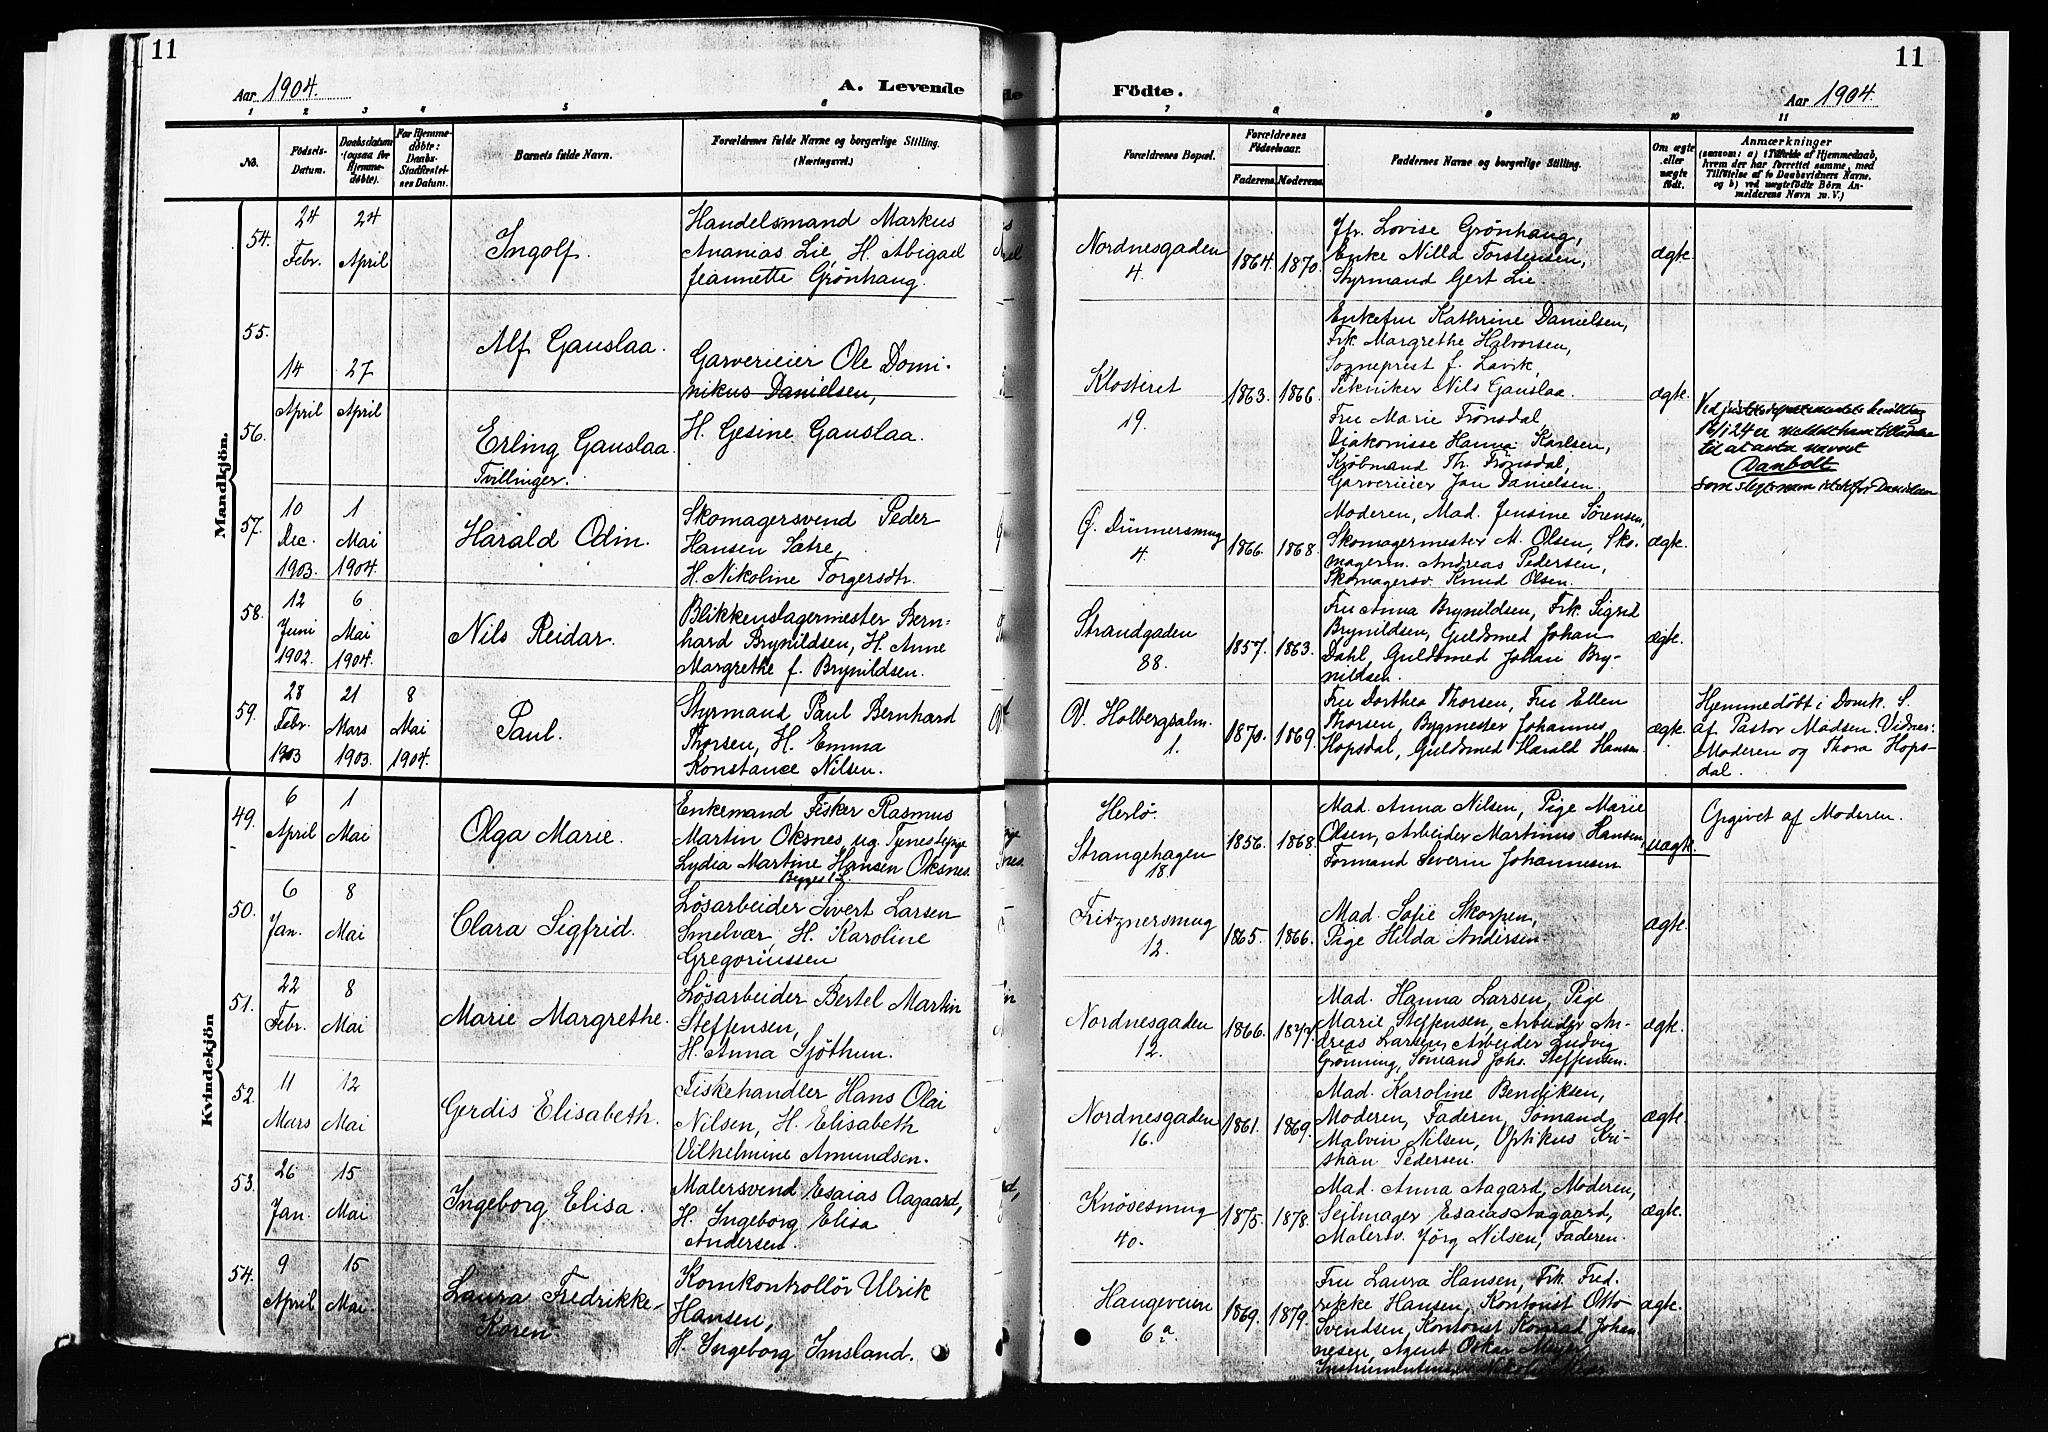 11
11
Aar 1904.
A. Levende
Födte.
Aar 1904.
1 2 3 4 5 6 7 8 9 10 11
No.
Födsels-
Datum.
Daabsdatum
(ogsaa for
Hjemme-
døbte).
For Hjemme-
døbte:
Daabs-
Stadfæstel-
ses Datum.
Barnets fulde Navn.
Forældrenes fulde Navne og borgerlige Stilling.
(Næringsvei.)
Forældrenes Bopæl.
Forældrenes
Fødselsaar.
Faderens.
Moderens.
Faddernes Navne og borgerlige Stilling.
Om ægte
eller
uægte
født.
Anmærkninger
(saasom: a) i Tilfælde af Hjemmedaab,
hvem der har forrettet samme, med
Tilføielse af to Daabsvidners Navne,
og b) ved uægtefödte Börn An-
melderens Navn m. V.)
Mandkjön.
54.
24
Febr.
24
April
Ingolf.
Handelsmand Markus
Ananias Lie, H. Abigael
Jeannette Grönhaug.
Nordnesgaden
4.
1864.
1870.
Jfr. Lovise Grönhaug,
Enke Nilla Torstensen,
Styrmand Gert Lie.
ægte.
55.
14
April
27
April
Alf Gauslaa.
Garverieier Ole Domi-
nikus Danielsen,
H. Gesine Gauslaa.
Klosteret
19.
1863.
1866.
Enkefru Kathrine Danielsen,
Frk. Margrethe Halvorsen,
Sogneprest f. Lavik,
Tekniker Nils Gauslaa.
ægte.
56.
Erling Gauslaa.
Tvillinger.
Fru Marie Frönsdal,
Diakonisse Hanna Karlsen,
Kjöbmand Th. Frönsdal,
Garverieier Jan Danielsen.
Ved justitsdepartementets bevilling
til at anta navnet
Danbolt
som slegtsnavn istedetfor Danielsen
57.
10
Dec.
1903.
1
Mai
1904.
Harald Odin.
Skomagersvend Peder
Hansen Sætre,
H. Nikoline Torgersdtr.
Ö. Dünnersmug
4.
1866.
1868.
Moderen, Mad. Jensine Sörensen,
Skomagermester M. Olsen, Sko-
magerm. Andreas Pedersen,
Skomagersv. Knud Olsen.
ægte.
58.
12
Juni
1902.
6
Mai
1904.
Nils Reidar.
Blikkenslagermester Bern-
hard Brynildsen, H. Anne
Margrethe f. Brynildsen.
Strandgaden
88.
1857.
1863.
Fru Anna Brynildsen, Frk. Sigrid
Brynildsen, Guldsmed Johan
Dahl, Guldsmed Johan Bry-
nildsen.
ægte.
59.
28
Febr.
1903
21
Mars
1903.
8
Mai
1904.
Paul.
Styrmand Paul Bernhard
Thorsen, H. Emma
Konstance Nilsen.
V. Holbergsalm.
1.
1870.
1869.
Fru Dorthea Thorsen, Fru Ellen
Thorsen, Bygmester Johannes
Hopsdal, Guldsmed Harald Hansen
ægte.
Hjemmedöbt i Domk. S.
af Pastor Madsen. Vidner:
Moderen og Thora Hops-
dal.
Kvindekjön
49.
6
April
1
Mai
Olga Marie.
Enkemand Fisker Rasmus
Martin Oksnes ug. Tjenestepige
Lydia Martine Hansen Oksnes.
Herlö.
Strangehagen
18.
1856.
1868.
Mad. Anna Nilsen, Pige Marie
Olsen, Arbeider Martinus Hansen,
Formand Severin Johannesen
uægte.
Opgivet af Moderen.
50.
6
Jan.
8
Mai
Clara Sigfrid.
Lösarbeider Sivert Larsen
Smelvær, H. Karoline
Gregoriussen
Fritznersmug
12.
1865.
1866.
Mad. Sofie Skorpen,
Pige Hilda Andersen.
ægte.
51.
22
Febr.
8
Mai
Marie Margrethe.
Lösarbeider Bertel Martin
Steffensen,
H. Anna Sjöthun.
Nordnesgaden
12.
1866.
1877.
Mad. Hanna Larsen, Pige
Marie Steffensen, Arbeider An-
dreas Larsen, Arbeider Ludvig
Grönning, Sömand Johs. Steffensen.
ægte.
52.
11
Mars
12
Mai
Gerdis Elisabeth.
Fiskehandler Hans Olai
Nilsen, H. Elisabeth
Vilhelmine Amundsen.
Nordnesgaden
16.
1861.
1869.
Mad. Karoline Bendiksen,
Moderen, Faderen, Sömand
Malvin Nilsen, Optikus Kri-
stian Pedersen.
ægte.
53.
26
Jan.
15
Mai
Ingeborg Elisa.
Malersvend Esaias Aagaard,
H. Ingeborg Elisa
Andersen.
Knösesmug
40.
1875.
1878.
Mad. Anna Aagard, Moderen,
Seilmager Esaias Aagaard,
Malersv. Jörg Nilsen, Faderen.
ægte.
54.
9
April
15
Mai
Laura Fredrikke
Koren.
Kornkontrollör Ulrik
Hansen,
H. Ingeborg Imsland.
Haugeveien
6 a.
1869.
1879.
Fru Laura Hansen, Frk. Fred-
rikke Hansen, Kontorist Otto
Svendsen, Kontorist Konrad Johan-
nesen, Agent Oskar Meyer,